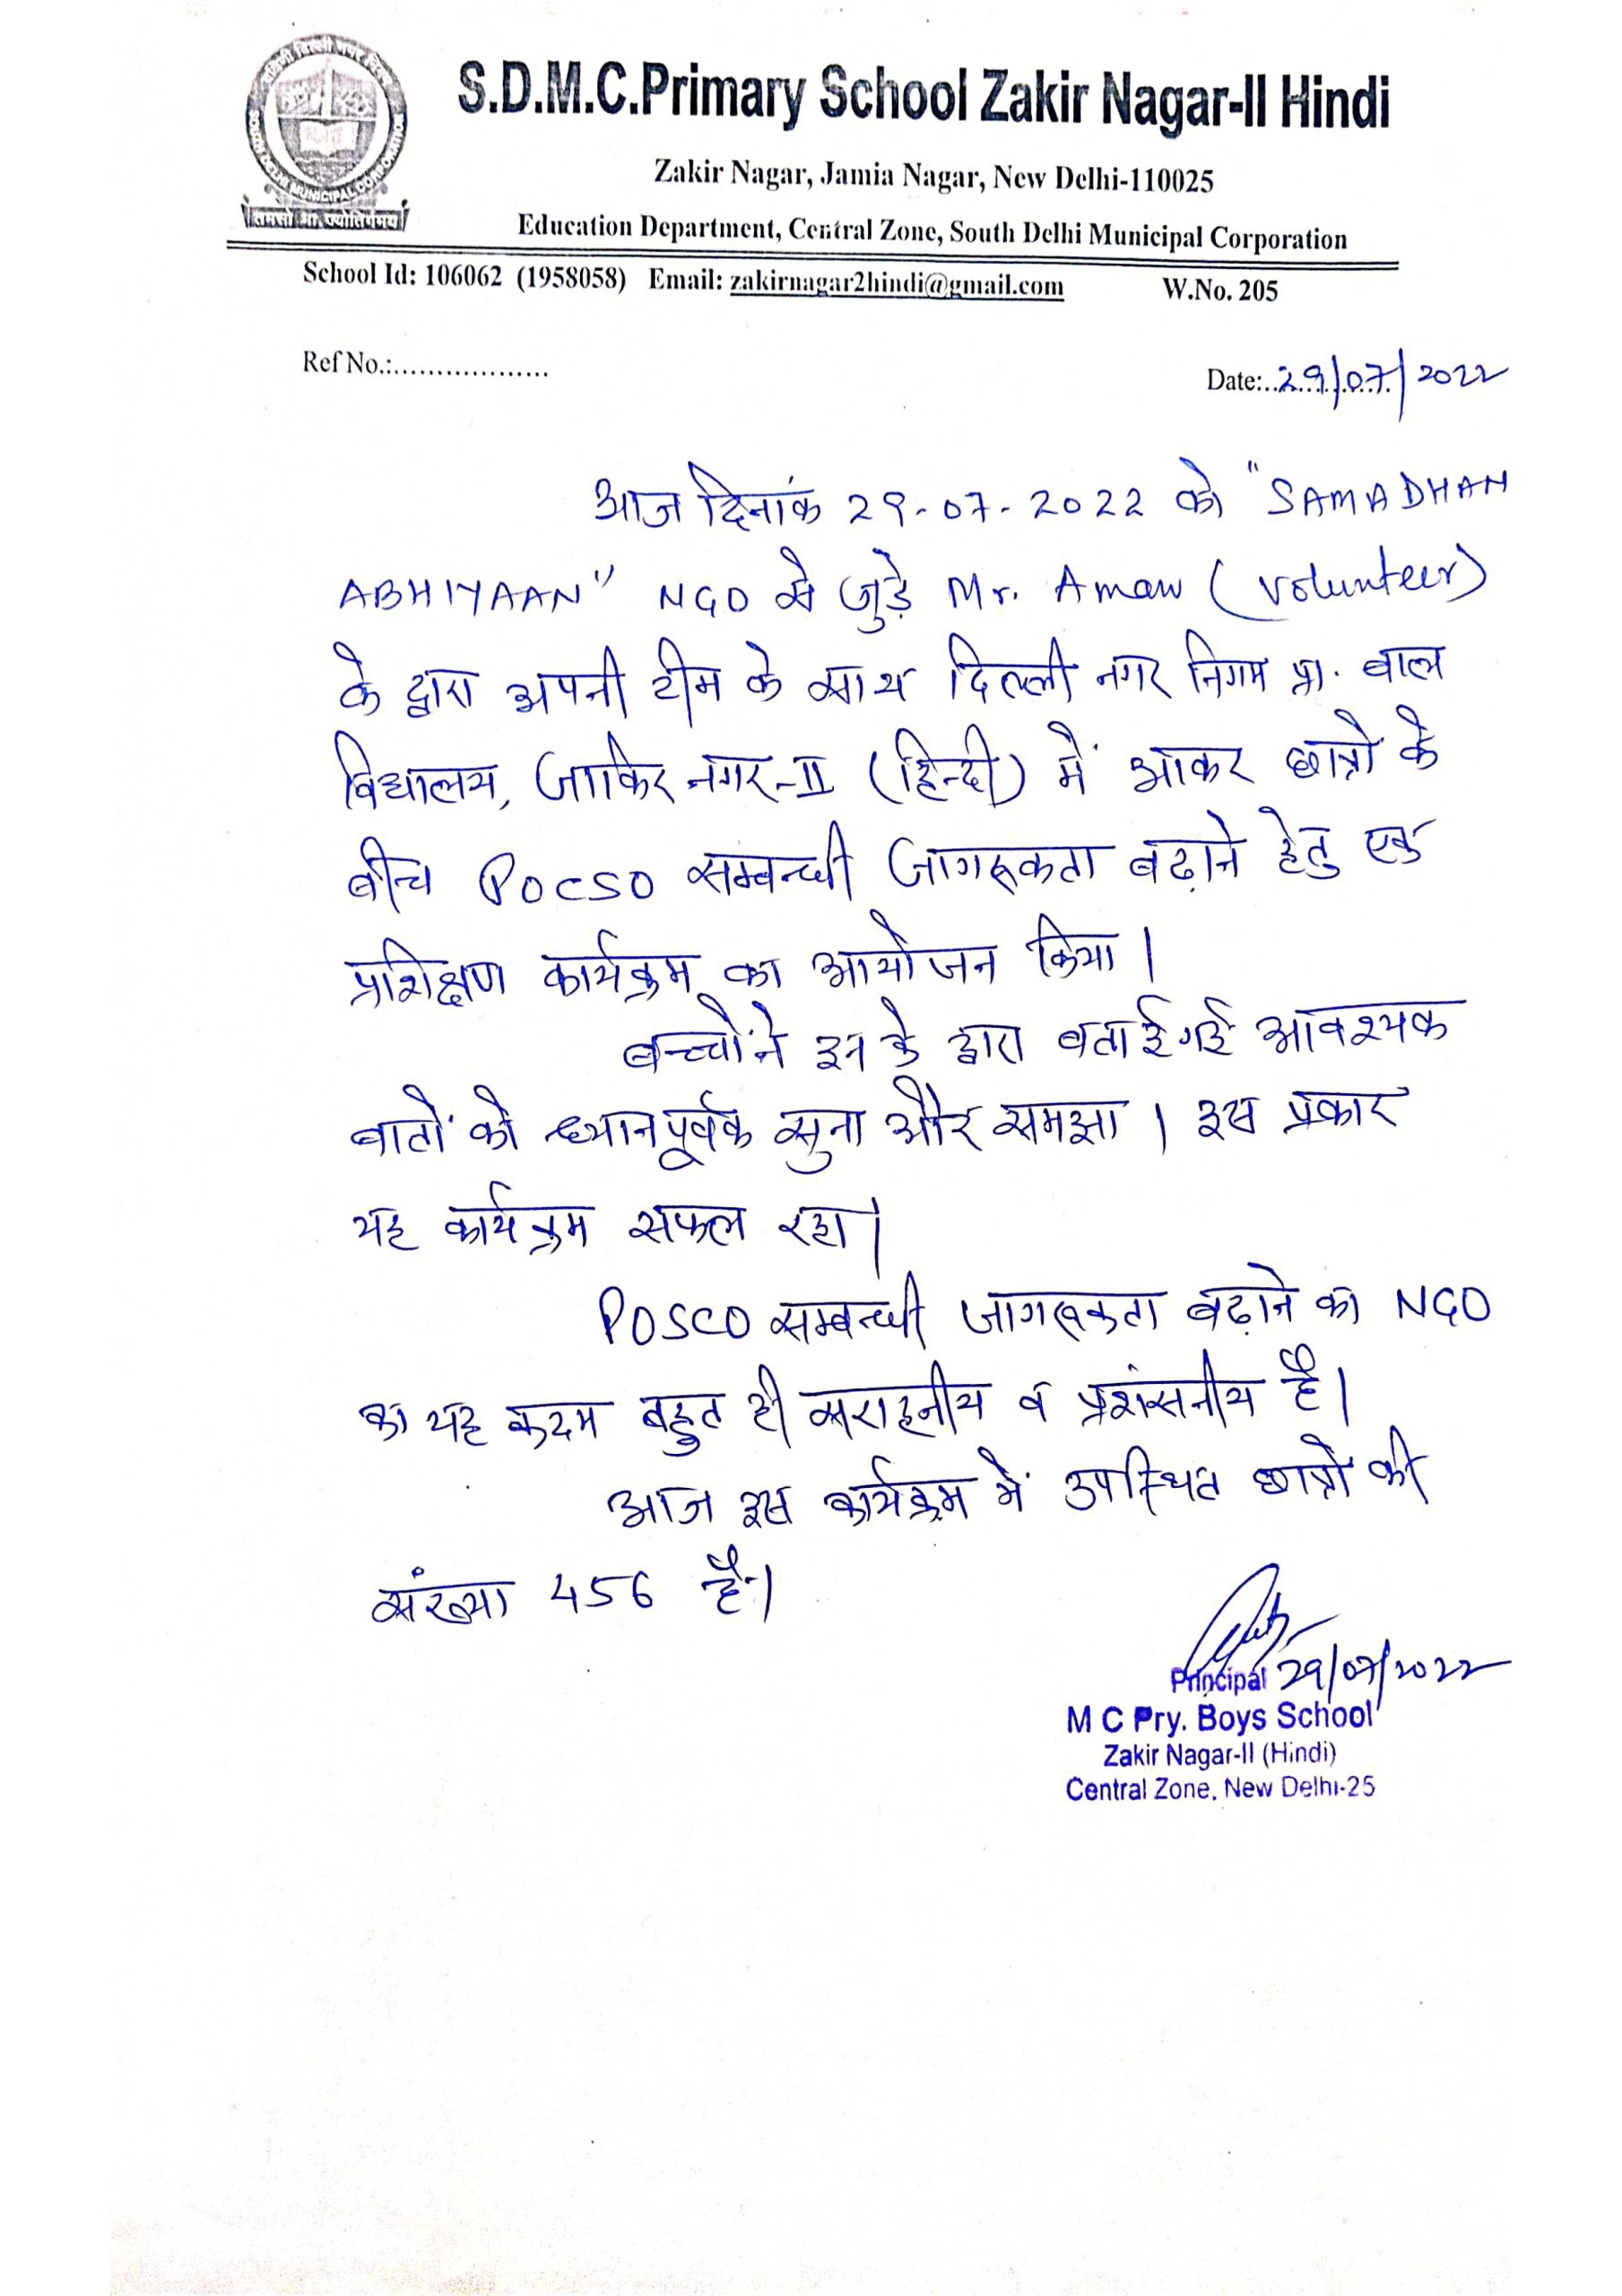 S.D.M.C.Primary School Zakir Nagar-II Hindi
Zakir Nagar, Jamia Nagar, New Delhi-110025
Education Department, Central Zone, South Delhi Municipal Corporation
SOUTH DELHI MUNICIPAL CORPORATION
तमसो मा ज्योतिर्गमय
School Id: 106062 (1958058) Email: zakirnagar2hindi@gmail.com W.No. 205
Ref No.:..................
Date:..29/07/2022
आज दिनांक 29-07-2022 को "SAMADHAN
ABHIYAAN" NGO से जुड़े Mr. Aman (Volunteer)
के द्वारा अपनी टीम के साथ दिल्ली नगर निगम प्रा. बाल
विद्यालय, जाकिर नगर-II (हिन्दी) में आकर छात्रों के
बीच POCSO सम्बन्धी जागरूकता बढ़ाने हेतु एक
प्रशिक्षण कार्यक्रम का आयोजन किया।
बच्चों ने इनके द्वारा बताई गई आवश्यक
बातों को ध्यानपूर्वक सुना और समझा। इस प्रकार
यह कार्यक्रम सफल रहा।
POSCO सम्बन्धी जागरूकता बढ़ाने का NGO
का यह कदम बहुत ही सराहनीय व प्रशंसनीय है।
आज इस कार्यक्रम में उपस्थित छात्रों की
संख्या 456 है।
Principal 29/07/2022
M C Pry. Boys School
Zakir Nagar-II (Hindi)
Central Zone, New Delhi-25